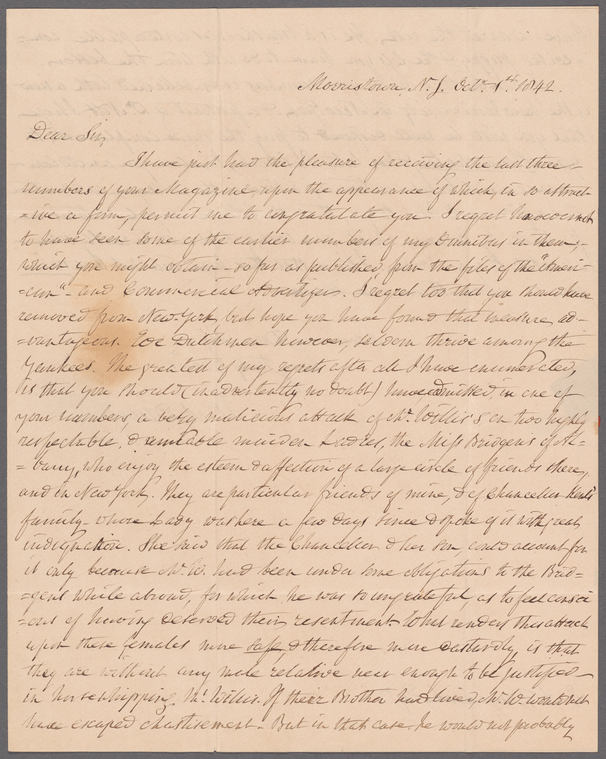 Morristown, N. J. Octr. 1st. 1842.
Dear Sir,
I have just had the pleasure of receiving the last three
numbers of your Magazine, upon the appearance of which, in so attract-
=ive a form, permit me to congratulate you. I regret however not
to have seen some of the earlier numbers of my Omnibus in them,
which you might obtain - so far as published from the files of the "Ameri-
=can" and Commercial Advertizer. I regret too that you should have
removed from New York, but hope you have found that measure, ad-
=vantageous. We Dutchmen however, seldom thrive among the
Yankees. The greatest of my regrets after all I have enumerated,
is that you should (inadvertently no doubt) have admitted, in one of
your numbers, a very malicious attack of Mr. Willis's on two highly
respectable, & amiable maiden Ladies, the Miss Bridgens of Al-
=bany, who enjoy the esteem & affection of a large circle of friends there,
and in New York. They are particular friends of mine, & of Chancellor Kent's
family - whose Lady was here a few days since & spoke of it with great
indignation. She said that the Chancellor & her son, could account for
it only because Mr. W. had been under some obligations to the Brid-
=gens while abroad, for which he was so ungrateful, as to feel consci-
=ous of having deserved their resentment. What renders this attack
upon these females more safe, & therefore more dastardly, is that
they are without any male relative near enough to be justified
in horsewhipping Mr. Willis. If their Brother had lived, Mr. W. would not
have escaped chastisement - But in that case he would not probably